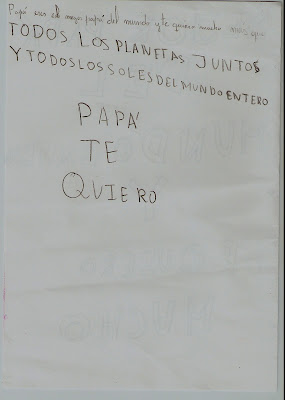 Papá eres el mejor papá del mundo y te quiero mucho más que
TODOS LOS PLANETAS JUNTOS
Y TODOS LOS SOLES DEL MUNDO ENTERO
PAPÁ
TE
QUIERO